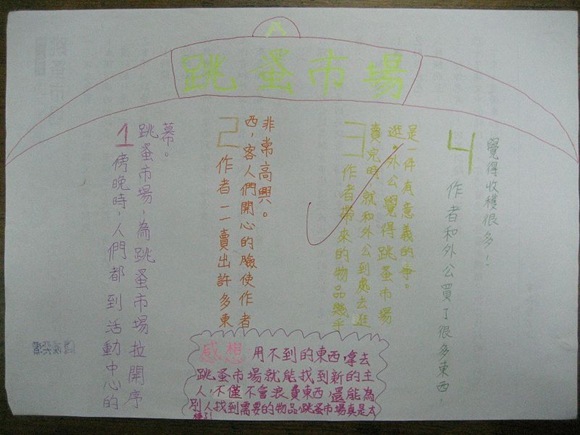 跳蚤市場
1 傍晚時,人們都到活動中心的
跳蚤市場,為跳蚤市場拉開序
幕。
2 作者一一賣出許多東
西,客人們開心的臉使作者
非常高興。
3 作者帶來的物品幾乎
賣完時,就和外公到處去逛
逛,外公覺得跳蚤市場
是一件有意義的事。
4 作者和外公買了很多東西
覺得收穫很多!
感想 用不到的東西,拿去
跳蚤市場就能找到新的主
人,不僅不會浪費東西,還能為
別人找到需要的物品,跳蚤市場真是太